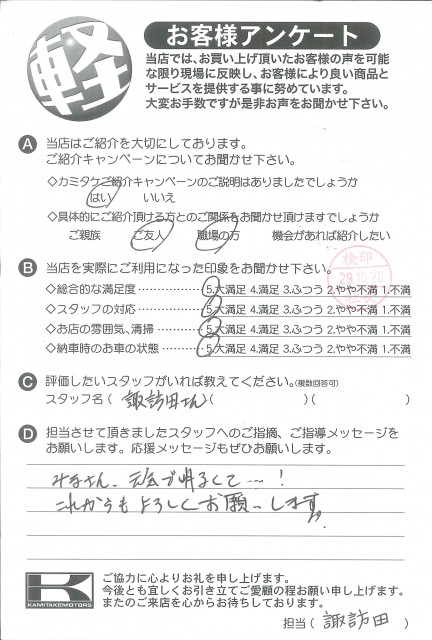 軽
お客様アンケート
当店では、お買い上げ頂いたお客様の声を可能
な限り現場に反映し、お客様により良い商品と
サービスを提供する事に努めています。
大変お手数ですが是非お声をお聞かせ下さい。
A 当店はご紹介を大切にしております。
ご紹介キャンペーンについてお聞かせ下さい。
◇カミタケご紹介キャンペーンのご説明はありましたでしょうか
はい いいえ
◇具体的にご紹介頂ける方とのご関係をお聞かせ頂けますでしょうか
ご親族 ご友人 職場の方 機会があれば紹介したい
検印
29.10.20
B 当店を実際にご利用になった印象をお聞かせ下さい。
◇総合的な満足度 5.大満足 4.満足 3.ふつう 2.やや不満 1.不満
◇スタッフの対応 5.大満足 4.満足 3.ふつう 2.やや不満 1.不満
◇お店の雰囲気、清掃 5.大満足 4.満足 3.ふつう 2.やや不満 1.不満
◇納車時のお車の状態 5.大満足 4.満足 3.ふつう 2.やや不満 1.不満
C 評価したいスタッフがいれば教えてください。(複数回答可)
スタッフ名 ( 諏訪田さん )( )( )
D 担当させて頂きましたスタッフへのご指摘、ご指導メッセージを
お願いします。応援メッセージもぜひお願いします。
みなさん、元気で明るくて…!
これからもよろしくお願いします!!
K
KAMITAKEMOTORS
ご協力に心よりお礼を申し上げます。
今後とも宜しくお引き立てご愛顧の程お願い申し上げます。
またのご来店を心からお待ちしております。
担当 ( 諏訪田 )